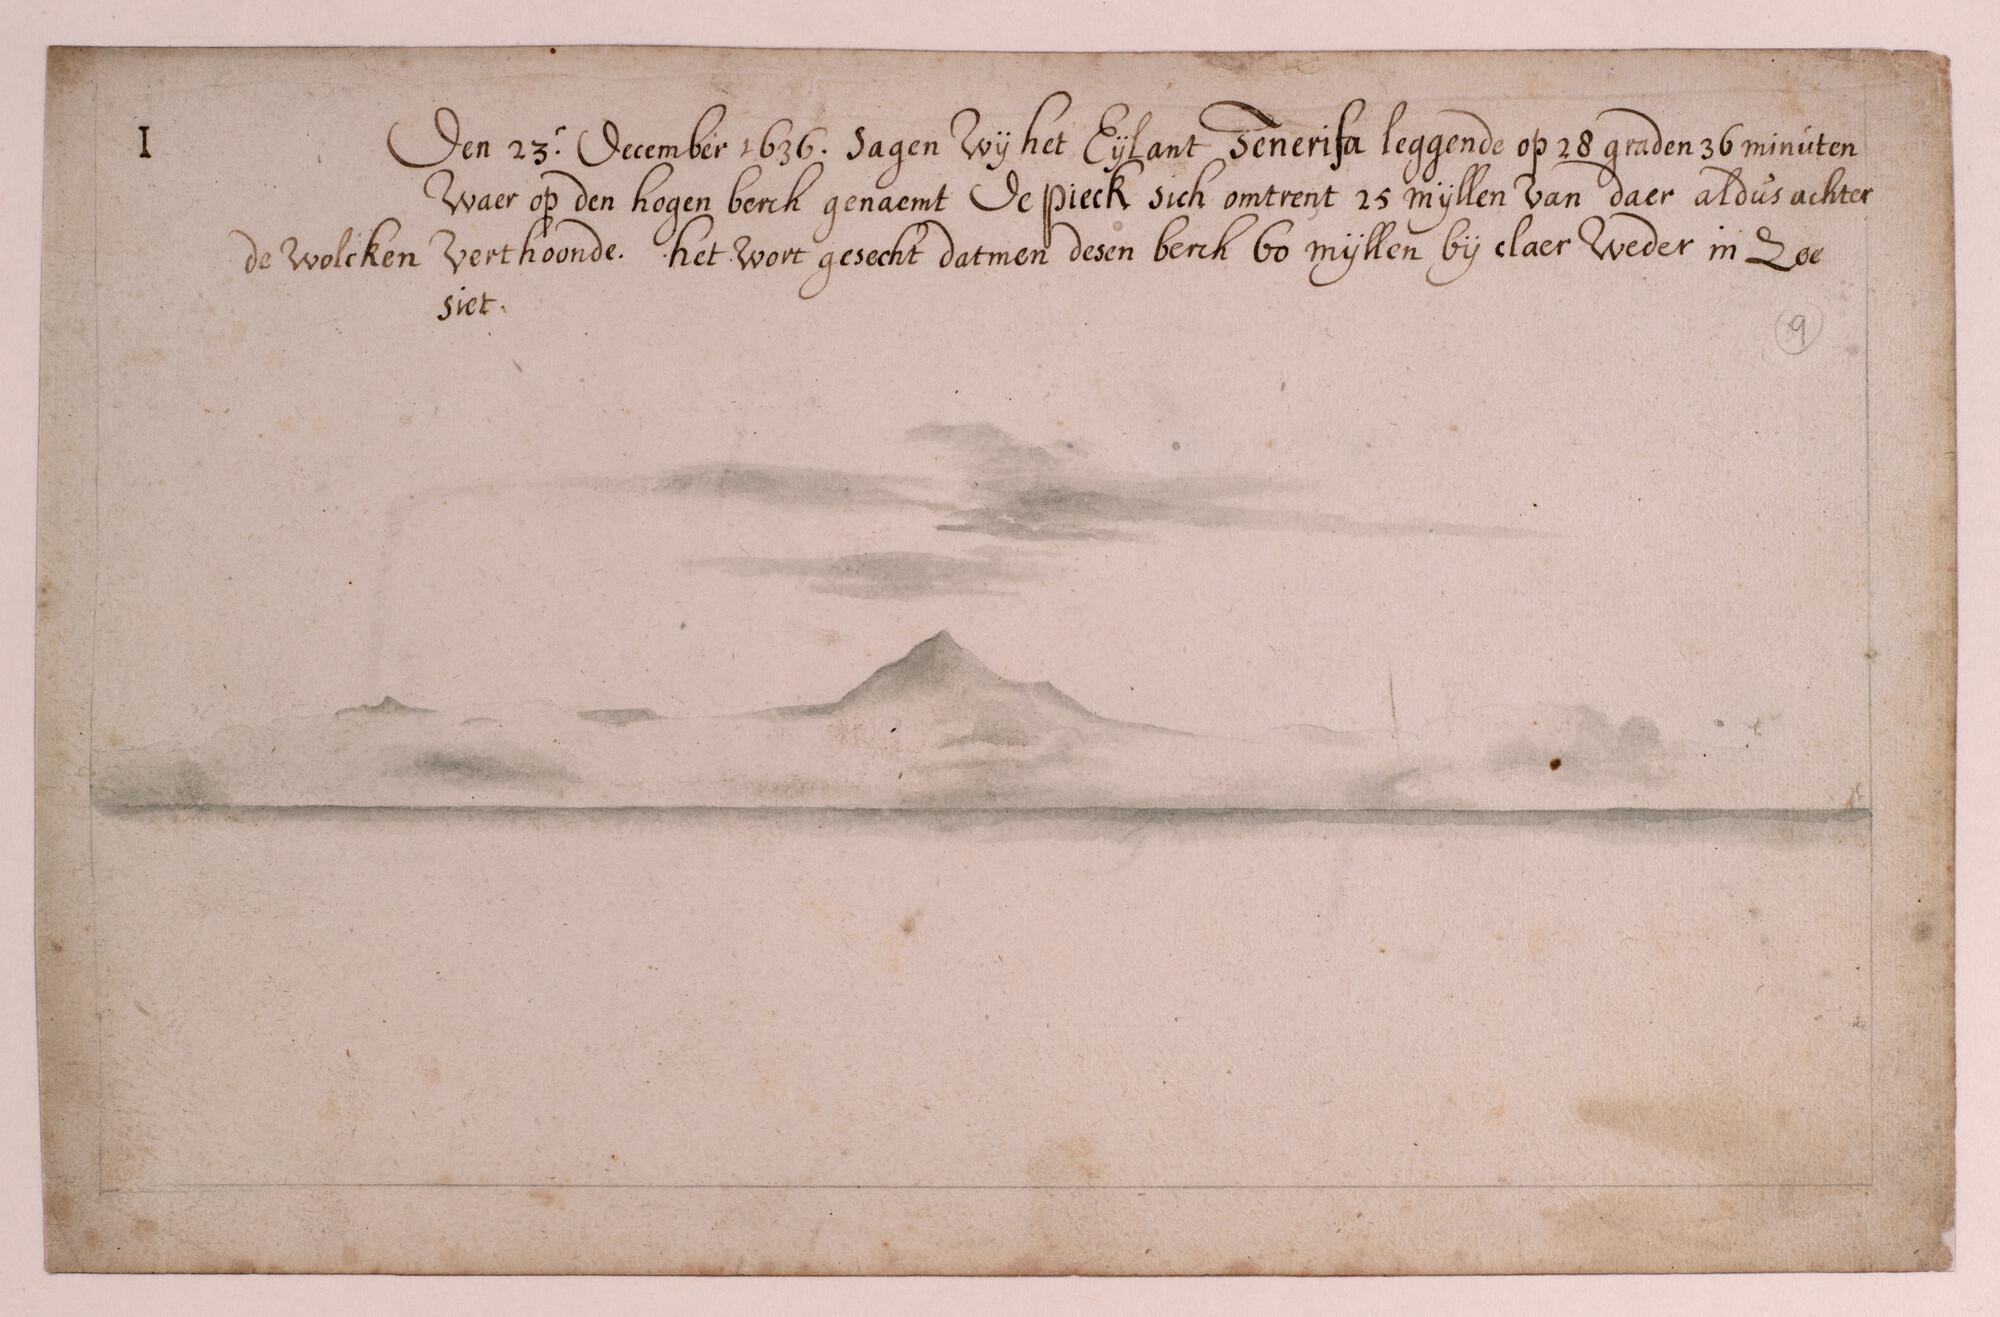 I
Den 23.r December 1636. Sagen Wij het Eijlant Tenerifa leggende op 28 graden 36 minuten
Waer op den hogen berch genaemt De Pieck sich omtrent 25 mijllen van daer aldus achter
de wolcken verthoonde. het wort gesecht datmen desen berch 60 mijllen bij claer weder in Zee
siet.
9